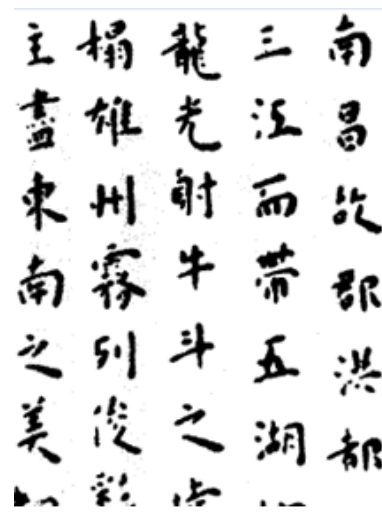 南昌故郡洪都
三江而帶五湖
龍光射牛斗之
榻雄州霧列俊
主盡東南之美